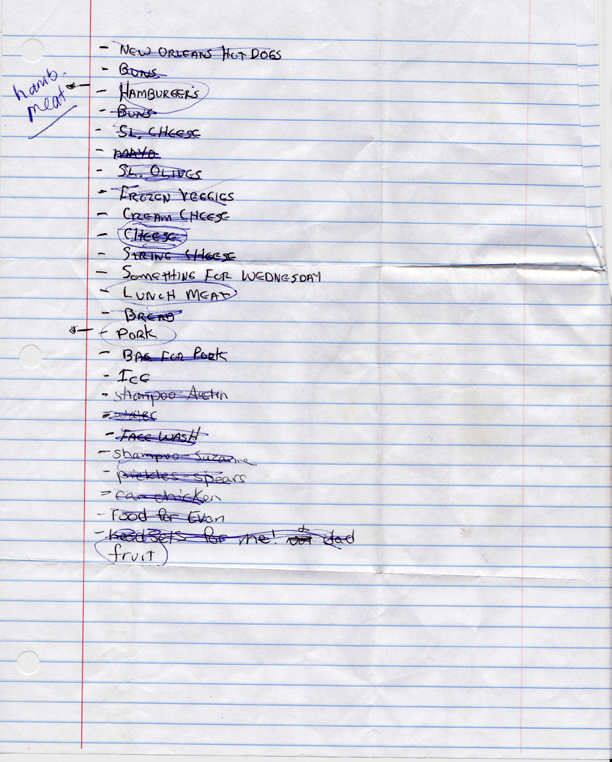 - NEW ORLEANS HOT DOGS
- BUNS
hamb.
meat
- HAMBURGERS
- BUNS
- SL. CHEESE
- MAYO
- SL. OLIVES
- FROZEN VEGGIES
- CREAM CHEESE
- CHEESE
- STRING CHEESE
- SOMETHING FOR WEDNESDAY
- LUNCH MEAT
- BREAD
- PORK
- BAG FOR PORK
- ICE
- shampoo Austin
- FACE WASH
- shampoo Suzanne
- pickles spears
- can chicken
- Food for Evan
- head sets for me! dad
fruit